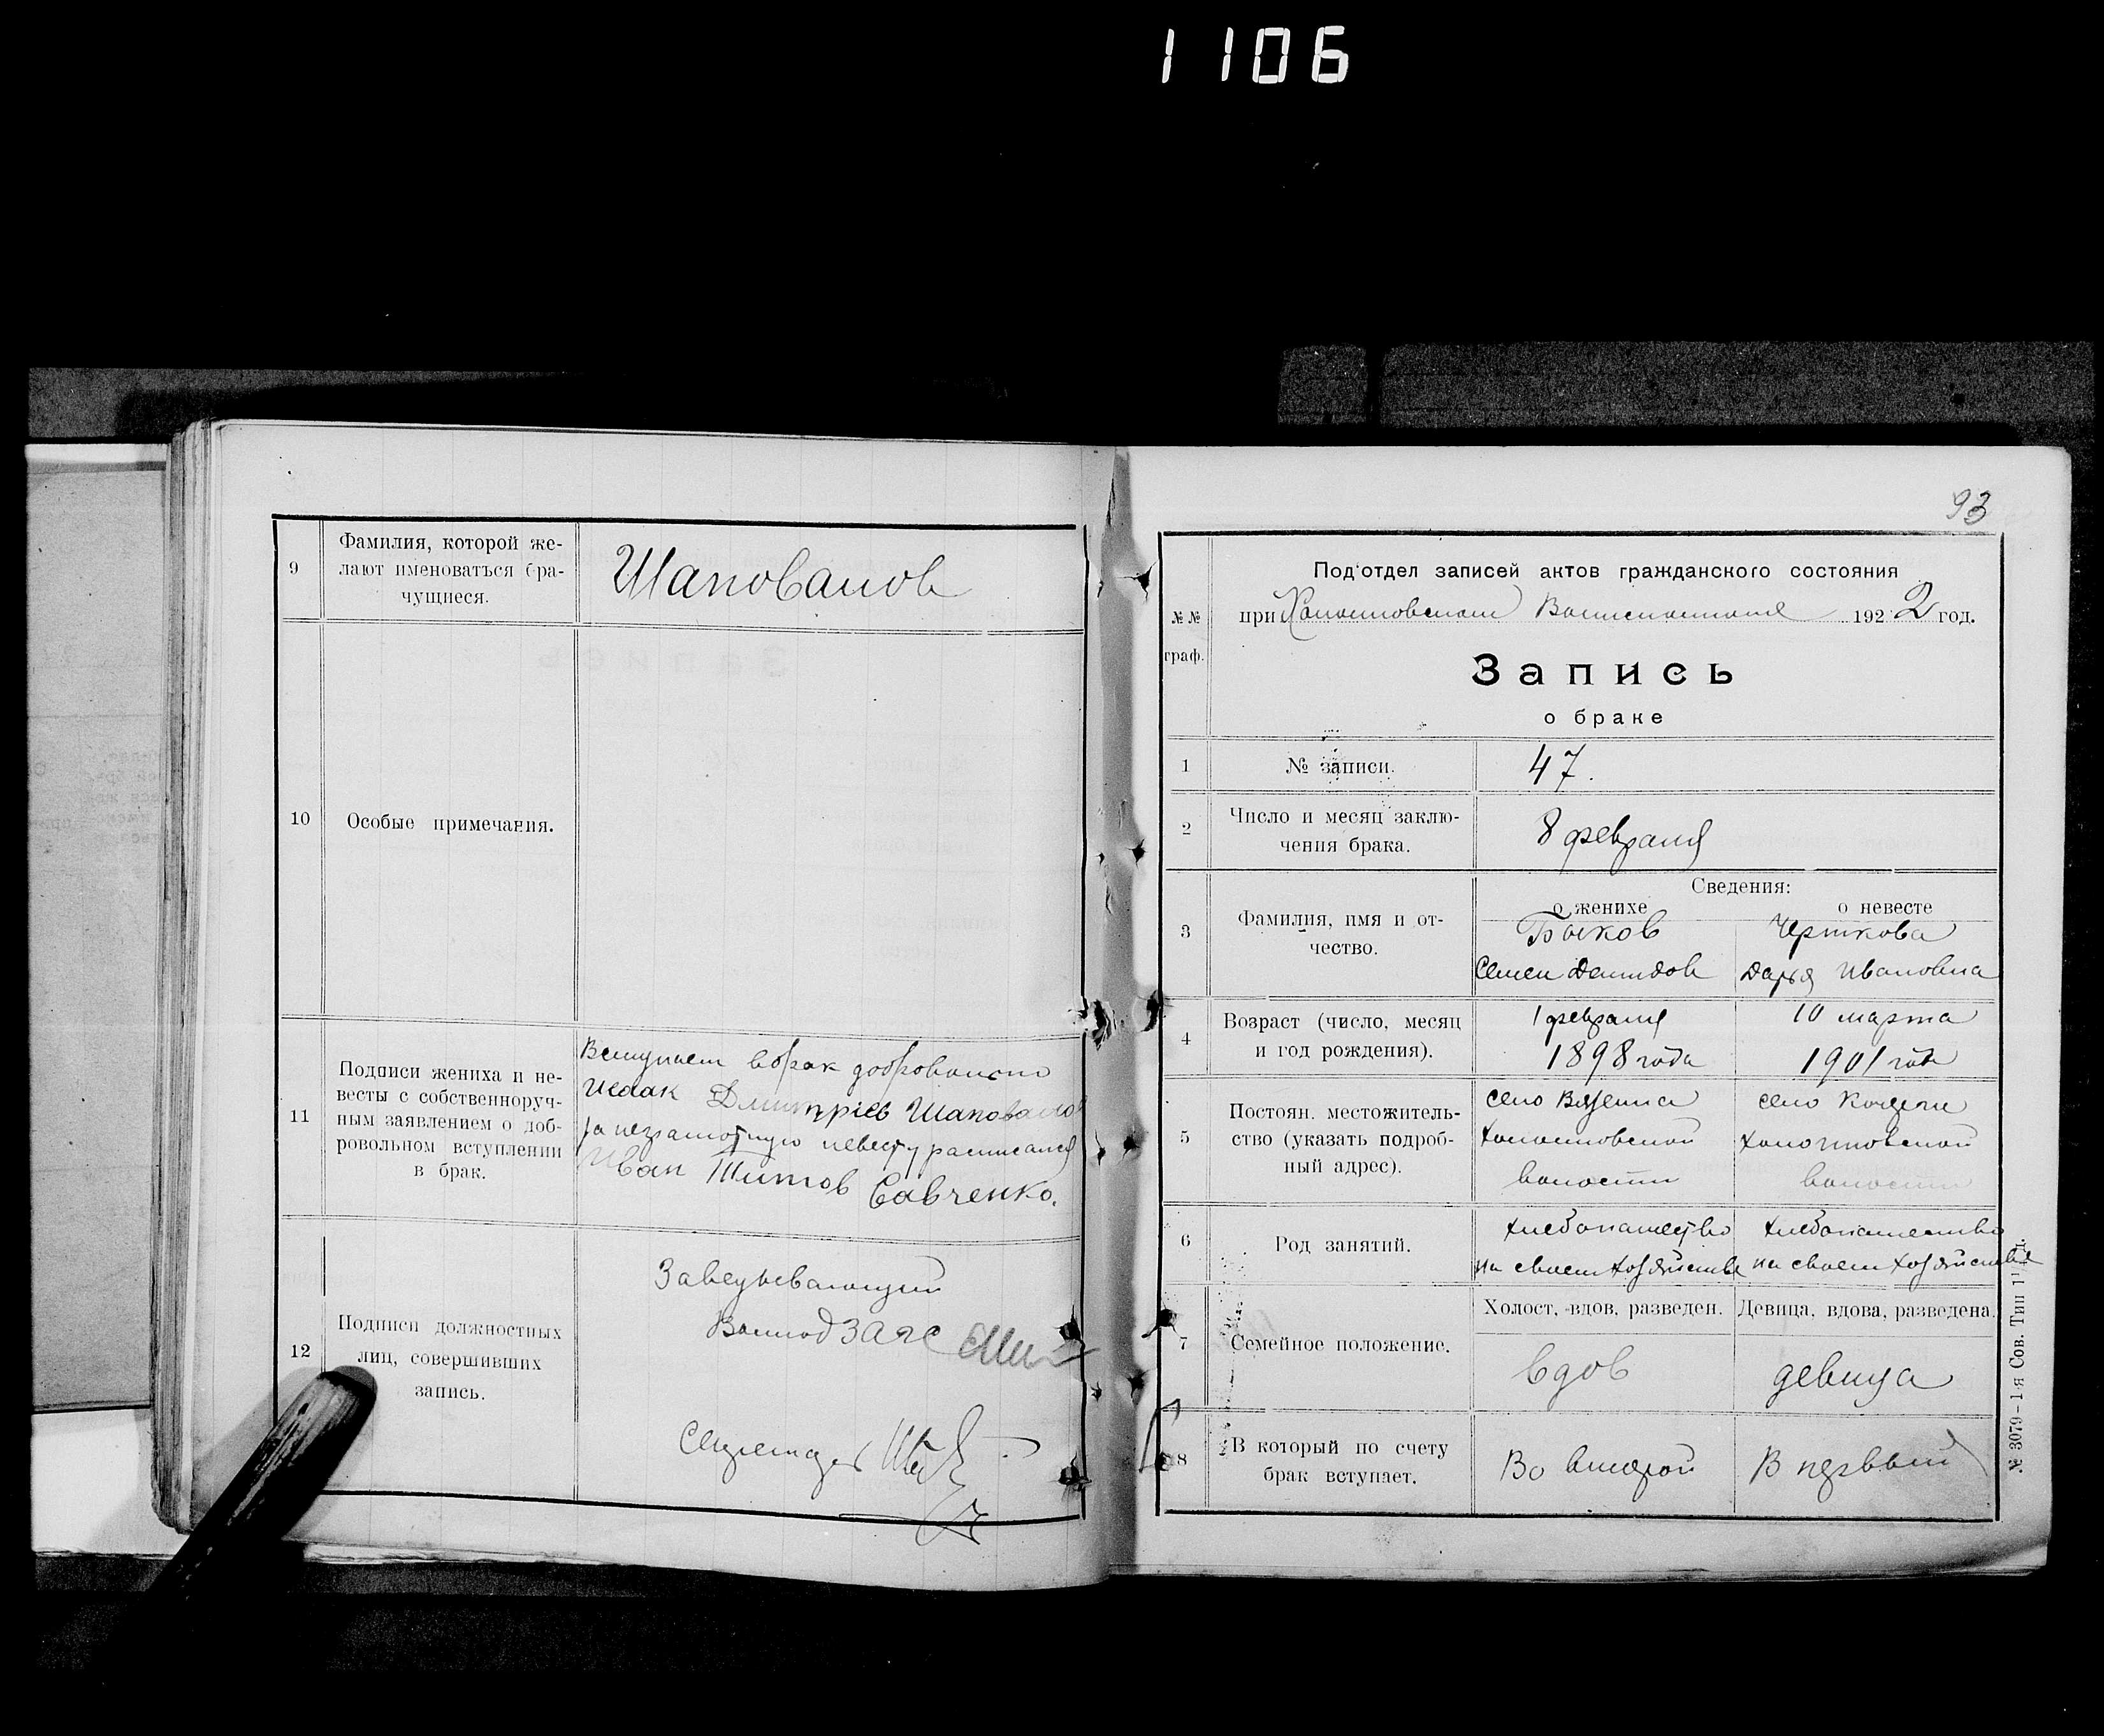 1106
9
Фамилия, которой же-
лают именоваться бра-
чущиеся.
Шаповалов
10
Особые примечания.
11
Подписи жениха и не-
весты с собственноруч-
ным заявлением о доб-
ровольном вступлении
в брак.
Вступаем в брак добровольно
Исаак Дмитріев Шаповалов
за неграмотную невесту расписался
Иван Титов Савченко.
12
Подписи должностных
лиц, совершивших
запись.
Заведывающий
ЗАГС
Секретарь
93
№№
граф.
Под'отдел записей актов гражданского состояния
при Волисполкоме 1922 год.
Запись
о браке
1
№ записи.
47.
2
Число и месяц заклю-
чения брака.
8 февраля
3
Фамилия, имя и от-
чество.
Сведения:
о женихе
о невесте
Быков
Семен Демидов
Черткова
Дарья Ивановна
4
Возраст (число, месяц
и год рождения).
1 февраля
1898 года
10 марта
1901 года
5
Постоян. местожитель-
ство (указать подроб-
ный адрес).
село
волости
село
волости
6
Род занятий.
хлебопашество
на своем хозяйстве
хлебопашество
на своем хозяйстве
7
Семейное положение.
Холост, вдов, разведен.
Девица, вдова, разведена.
вдов
девица
8
В который по счету
брак вступает.
Во второй
В первый
№ 3079-1-я Сов. Тип